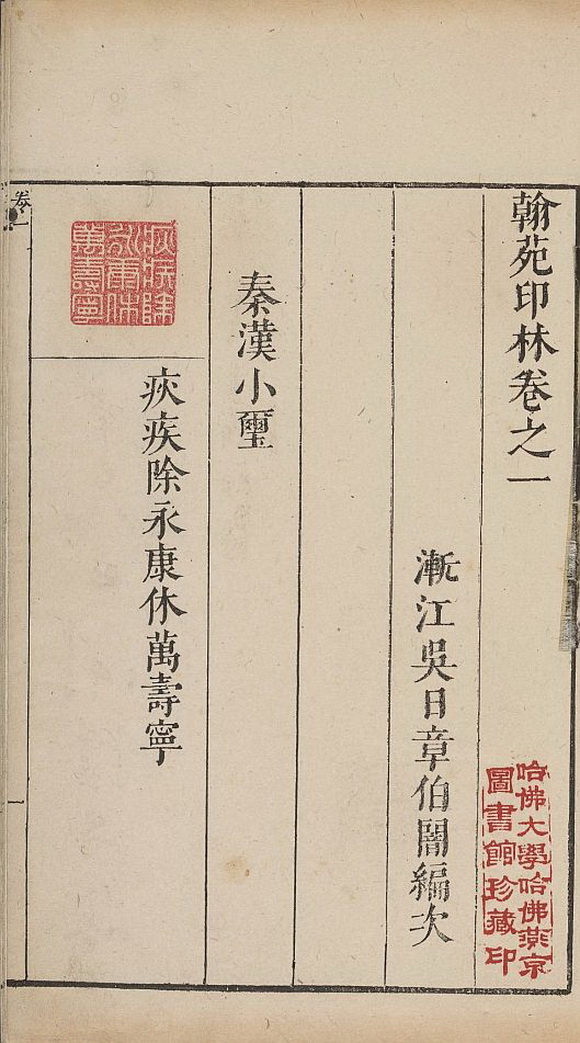 翰苑印林卷之一
漸江吳日章伯闇編次
哈佛大學哈佛燕京
圖書館珍藏印
秦漢小璽
疢疾除
永康休
萬壽寧
疢疾除永康休萬壽寧
卷一
一